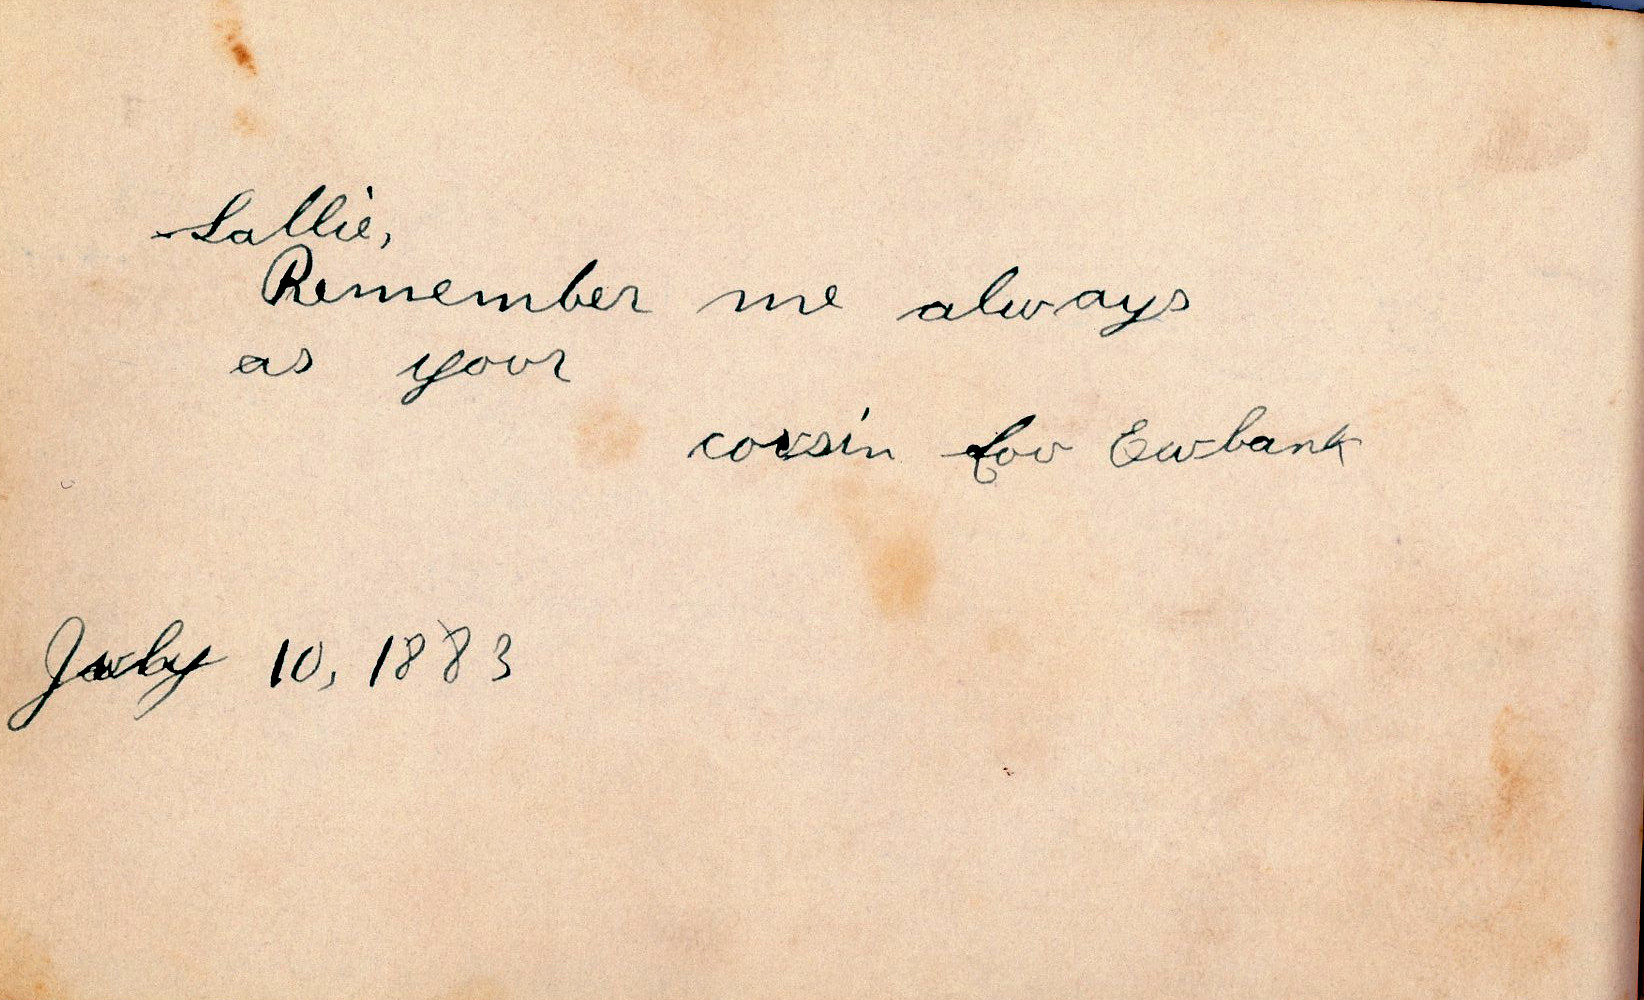 Sallie,
Remember me always
as your
cousin Lou Ewbank
July 10, 1883